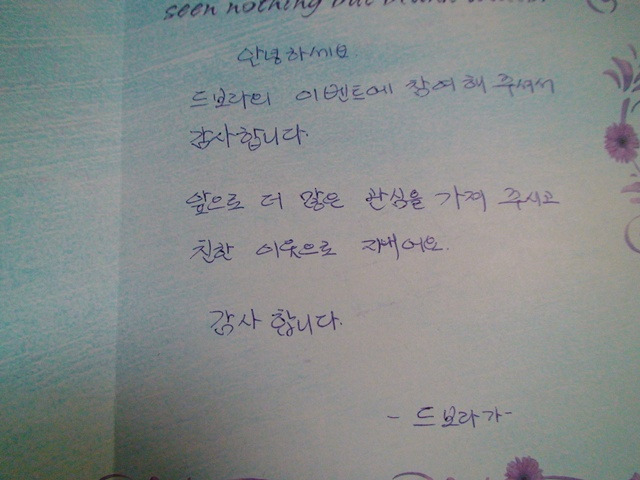 seen nothing but
안녕하세요
드보라의 이벤트에 참여해 주셔서
감사합니다.
앞으로 더 많은 관심을 가져 주시고
친한 이웃으로 지내어요.
감사 합니다.
- 드보라가 -